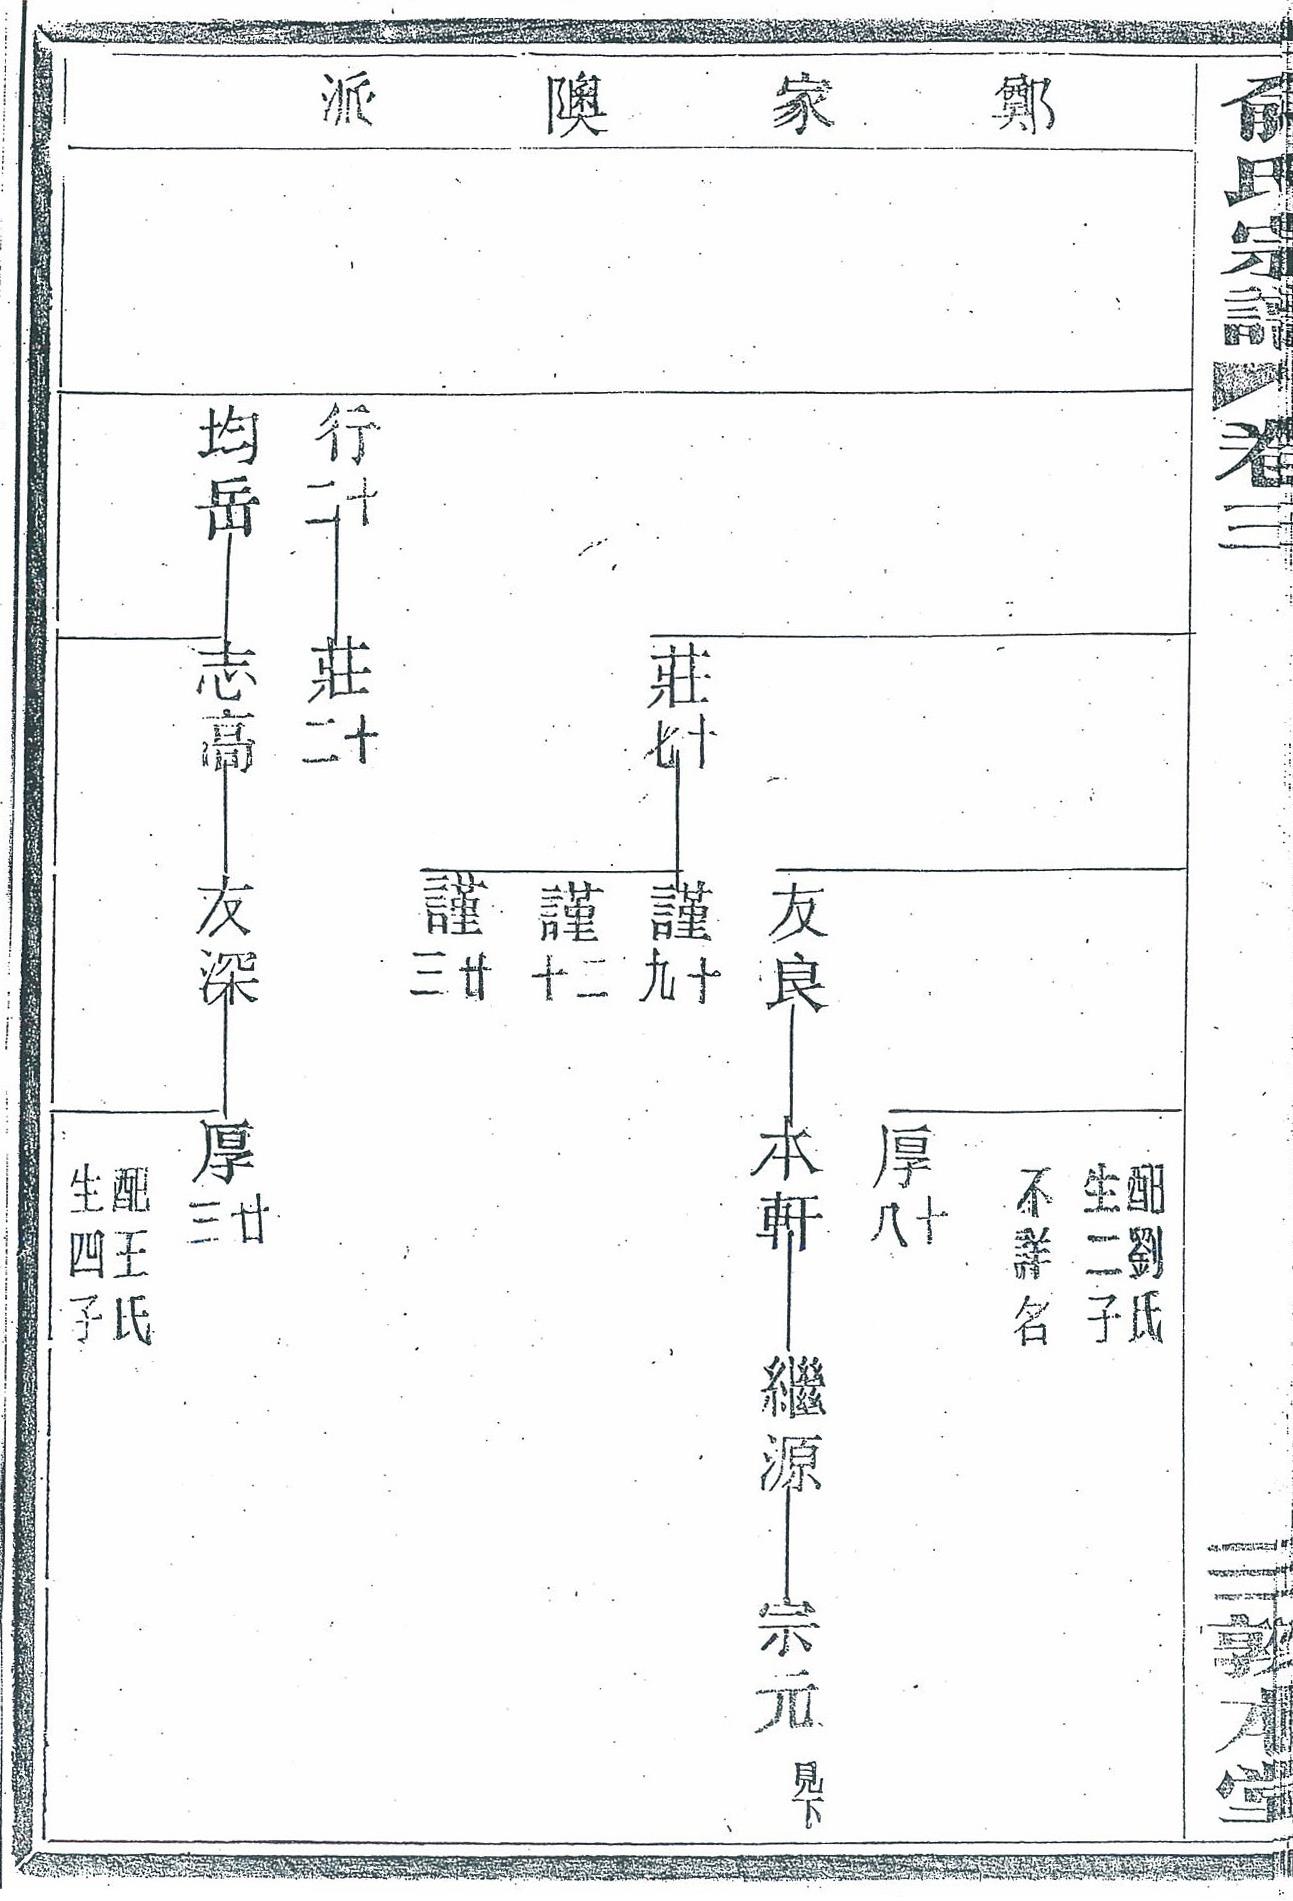 俞氏宗譜
卷三
敦本堂
鄭家隩派
配劉氏
生二子
不詳名
厚十八
友良
本軒
繼源
宗元
見下
莊十七
謹十九
謹二十
謹廿三
行十二
莊十二
均岳
志高
友深
厚廿三
配王氏
生四子